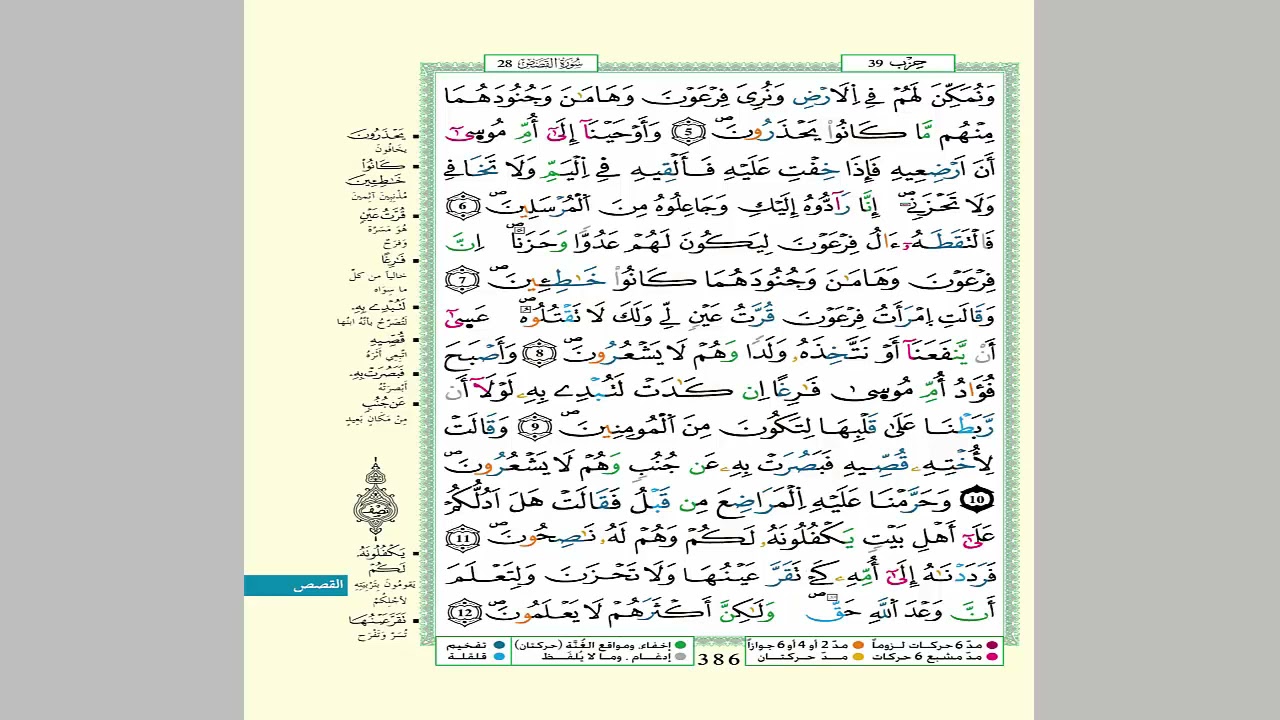 سُورَةُ القَصَصِ 28
حِزْب 39
وَنُمَكِّنَ لَهُمْ فِي اِ۬لَارْضِ وَنُرِيَ فِرْعَوْنَ وَهَٰمَٰنَ وَجُنُودَهُمَا
مِنْهُم مَّا كَانُواْ يَحْذَرُونَۖ 5 وَأَوْحَيْنَآ إِلَىٰٓ أُمِّ مُوس۪ىٰٓ
أَنَ اَرْضِعِيهِ فَإِذَا خِفْتِ عَلَيْهِ فَأَلْقِيهِ فِي اِ۬لْيَمِّ وَلَا تَخَافِي
وَلَا تَحْزَنِيۖ إِنَّا رَآدُّوهُ إِلَيْكِ وَجَاعِلُوهُ مِنَ اَ۬لْمُرْسَلِينَۖ 6
فَالْتَقَطَهُۥٓ ءَالُ فِرْعَوْنَ لِيَكُونَ لَهُمْ عَدُوّٗا وَحَزَناًۖ اِنَّ
فِرْعَوْنَ وَهَٰمَٰنَ وَجُنُودَهُمَا كَانُواْ خَٰطِـِٕينَۖ 7
وَقَالَتِ اِ۪مْرَأَتُ فِرْعَوْنَ قُرَّتُ عَيْنٖ لِّي وَلَكَ لَا تَقْتُلُوهُۖ عَس۪ىٰٓ
أَنْ يَّنفَعَنَآ أَوْ نَتَّخِذَهُۥ وَلَداٗ وَهُمْ لَا يَشْعُرُونَۖ 8 وَأَصْبَحَ
فُؤَادُ أُمِّ مُوس۪ىٰ فَٰرِغاً اِن كَٰدَتْ لَتُبْدِے بِهِۦ لَوْلَآ أَن
رَّبَطْنَا عَلَىٰ قَلْبِهَا لِتَكُونَ مِنَ اَ۬لْمُومِنِينَۖ 9 وَقَالَتْ
لِأُخْتِهِۦ قُصِّيهِ فَبَصُرَتْ بِهِۦ عَن جُنُبٖ وَهُمْ لَا يَشْعُرُونَۖ
10 وَحَرَّمْنَا عَلَيْهِ اِ۬لْمَرَاضِعَ مِن قَبْلُ فَقَالَتْ هَلَ اَدُلُّكُمْ
عَلَىٰٓ أَهْلِ بَيْتٖ يَكْفُلُونَهُۥ لَكُمْ وَهُمْ لَهُۥ نَٰصِحُونَۖ 11
فَرَدَدْنَٰهُ إِلَىٰٓ أُمِّهِۦ كَيْ تَقَرَّ عَيْنُهَا وَلَا تَحْزَنَ وَلِتَعْلَمَ
أَنَّ وَعْدَ اَ۬للَّهِ حَقّٞۖ وَلَٰكِنَّ أَكْثَرَهُمْ لَا يَعْلَمُونَۖ 12
يَحْذَرُونَ
يخافون
كَانُواْ
خَٰطِـِٕينَ
مُذْنِبينَ آثِمينَ
قُرَّتُ عَيْنٖ
هُوَ مَسَرّة
وَفرَح
فَٰرِغاً
خالياً من كلّ
ما سِوَاه
لَتُبْدِے بِهِۦ
لَتُصَرِّحُ بأنّهُ ابنُها
قُصِّيهِ
اتّبِعِي أثَرَهُ
فَبَصُرَتْ بِهِۦ
أبْصَرَتْهُ
عَن جُنُبٖ
مِنْ مَكَانٍ بَعِيدٍ
نصف
يَكْفُلُونَهُۥ
لَكُمْ
يَقومُونَ بِتَرْبِيَتِهِ
لأجْلِكُمْ
تَقَرَّ عَيْنُهَا
تُسَرَّ وَتَفْرَح
القصص
مدّ 6 حركات لزوماً مدّ 2 أو 4 أو 6 جوازاً
مدّ مشبع 6 حركات مدّ حركتان
386
إخفاء، ومواقع الغُنَّة (حركتان) تفخيم
إدغام . وما لا يُلفَظ قلقلة